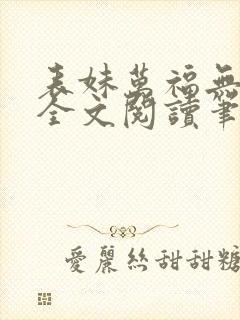 表妹萬福無
全文閱讀筆
愛麗絲甜甜糖